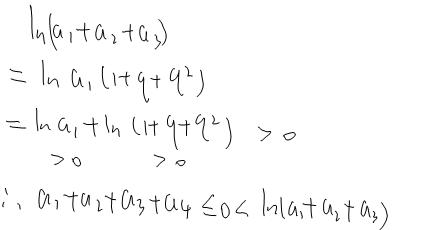 ln(a₁+a₂+a₃)
= ln a₁(1+q+q²)
= ln a₁+ln(1+q+q²) > 0
>0 >0
∴ a₁+a₂+a₃+a₄ ≤0< ln(a₁+a₂+a₃)